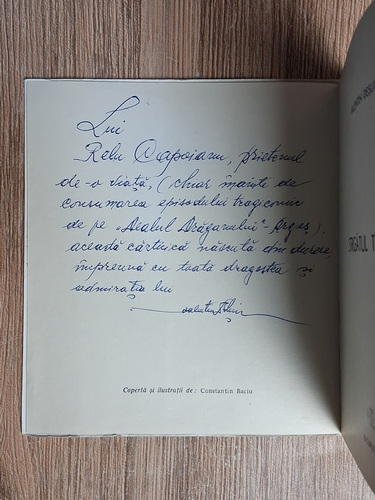 Lui
Relu Căpoianu, prietenul
de-o viață, (chiar înainte de
consumarea episodului tragicomic
de pe „Dealul Drăganului"-Argeș).
această cărticică născută din durere,
împreună cu toată dragostea și
admirația lui
Coperta și ilustrații de: Constantin Baciu